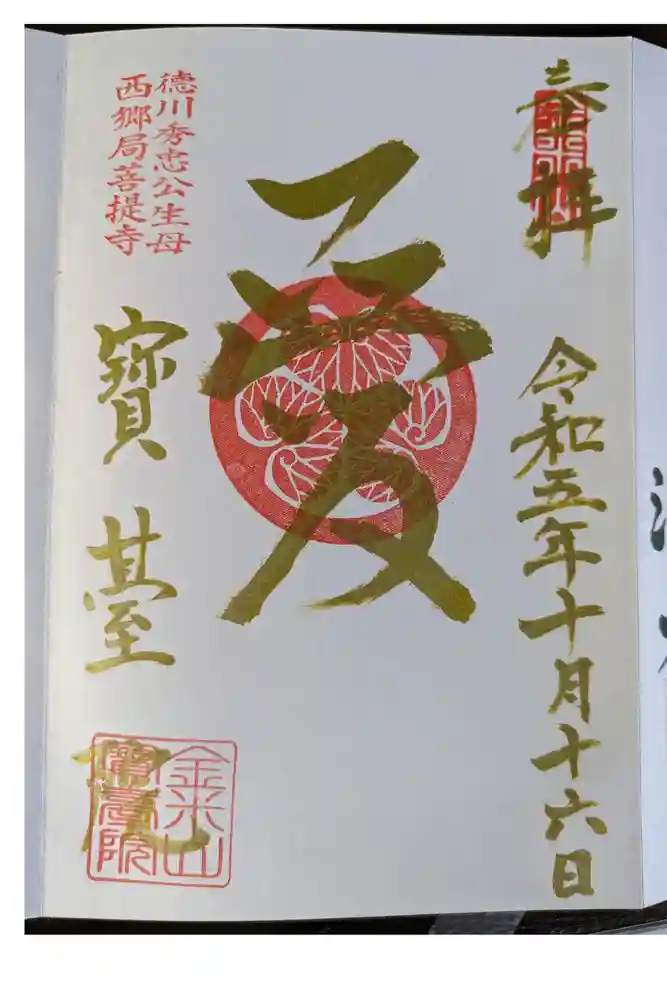 奉拝
令和五年十月十六日
愛
徳川秀忠公生母
西郷局菩提寺
寳臺院
金米山
寶臺院